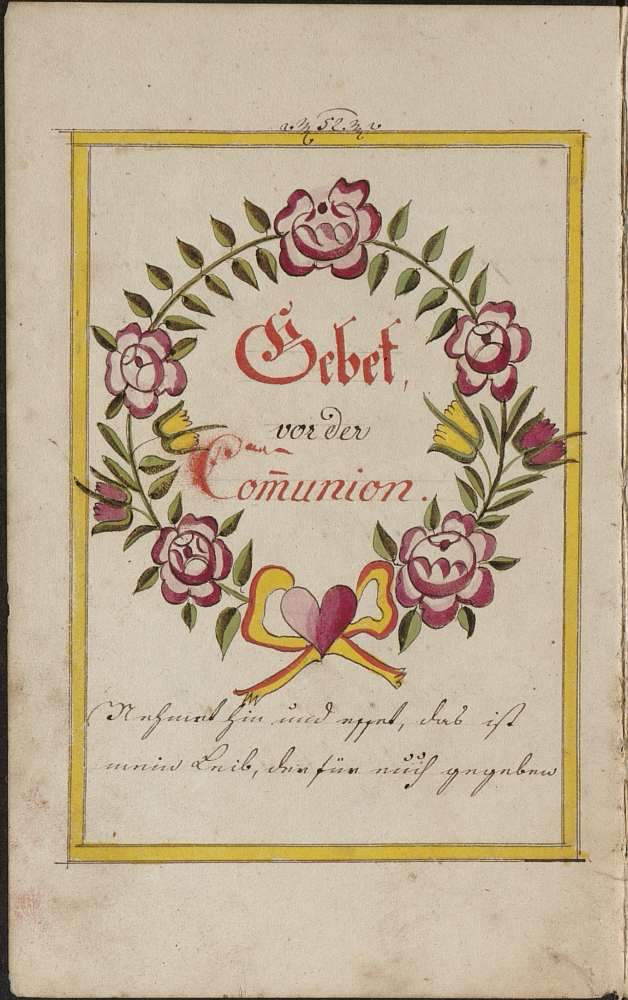 52.
Gebet,
vor der
Com̅union.
Nehmet hin und esset, das ist
mein Leib, der für euch gegeben